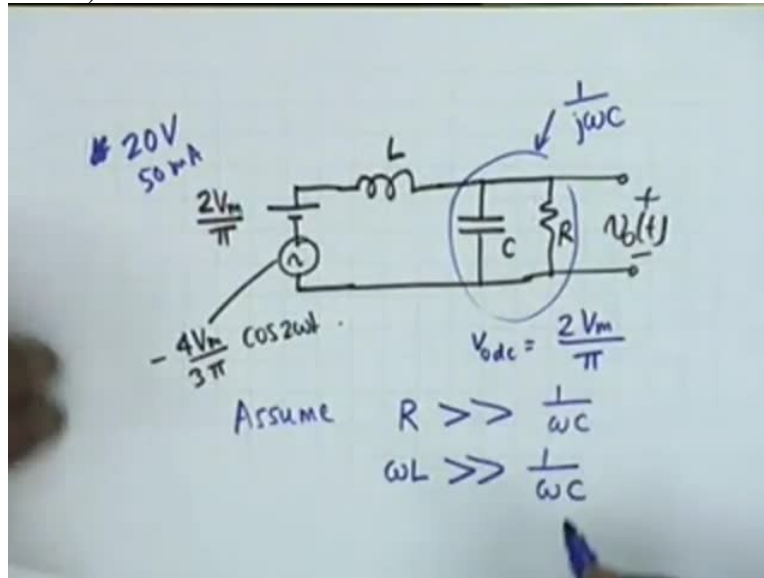 1/jωC
20V
50 mA
L
2Vm/π
C
R
+
V₀(t)
−
~
− 4Vm/3π cos2ωt .
V₀dc = 2Vm/π
Assume R >> 1/ωC
ωL >> 1/ωC